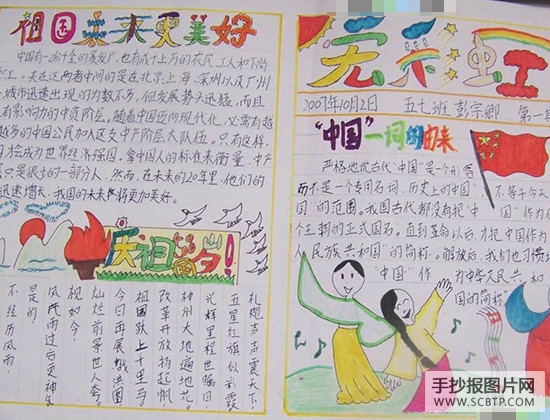 祖国未来更美好
中国有一批什么的暴发户,也有成千上万的农民、工人和下岗
工。夹在这两者中间的是在北京、上海、深圳以及广州
城市迅速出现的为数不多,但发展势头迅猛,而且
有影响力的中资阶层。随着中国迈向现代化,必需有越
越多的中国公民加入这支中产阶层大队伍。只有这样,
才会成为世界经济强国。拿中国人的标准来衡量,中产
层只是很小的一部分人,然而,在未来的20年里,他们的
迅速增长,我国的未来将更加美好。
庆祖国 岁!
礼炮声声震天下
五星红旗似彩霞
光辉里程世瞩目
神州大地遍地花
改革开放扬起帆
祖国跃上千里马
今日再展鸿图
灿烂前景世人
视如今!
风雨过后更神
是的
不经历风雨,
无彩虹
2007年10月2日 五七班 彭宗卿 第一
"中国"一词的由来
严格地说古代"中国"是个形容
而不是一个专用名词,历史上的"中国"不等于今天
国"的范围。我国古代都没有把"中国"作为
个王朝的正式国名。直到革命以后才把中国作为
人民族共和国"的简称。解放后,我们也习惯
"中国"作为中华人民共和
国的简称。
手抄报图片网
WWW.SCBTP.COM